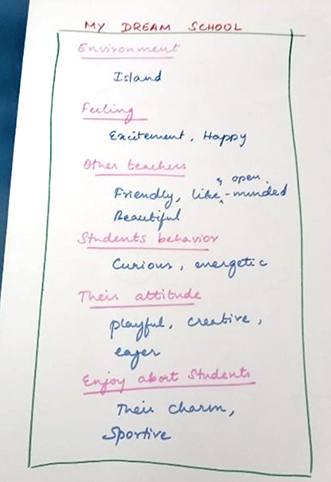 MY DREAM SCHOOL
Environment
Island
Feeling
Excitement, Happy
Other teachers
& open
Friendly, like-minded
Beautiful
Students behavior
Curious, energetic
Their attitude
playful, creative,
eager
Enjoy about Students
Their charm,
Sportive